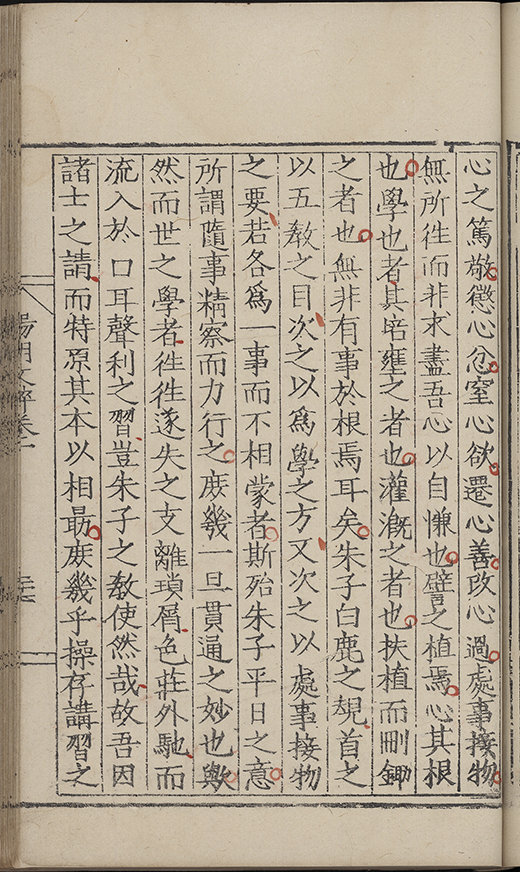 心之篤敬懲心忿窒心欲遷心善改心過處事接物
無所徃而非求盡吾心以自慊也譬之植焉心其根
也學也者其培壅之者也灌漑之者也扶植而刪鋤
之者也無非有事於根焉耳矣朱子白鹿之規首之
以五敎之目次之以爲學之方又次之以處事接物
之要若各爲一事而不相蒙者斯殆朱子平日之意
所謂隨事精察而力行之庻幾一旦貫通之妙也歟
然而世之學者徃徃遂失之支離瑣屑色莊外馳而
流入於口耳聲利之習豈朱子之敎使然哉故吾因
諸士之請而特原其本以相朂庻幾乎操存講習之
陽明文粹卷一